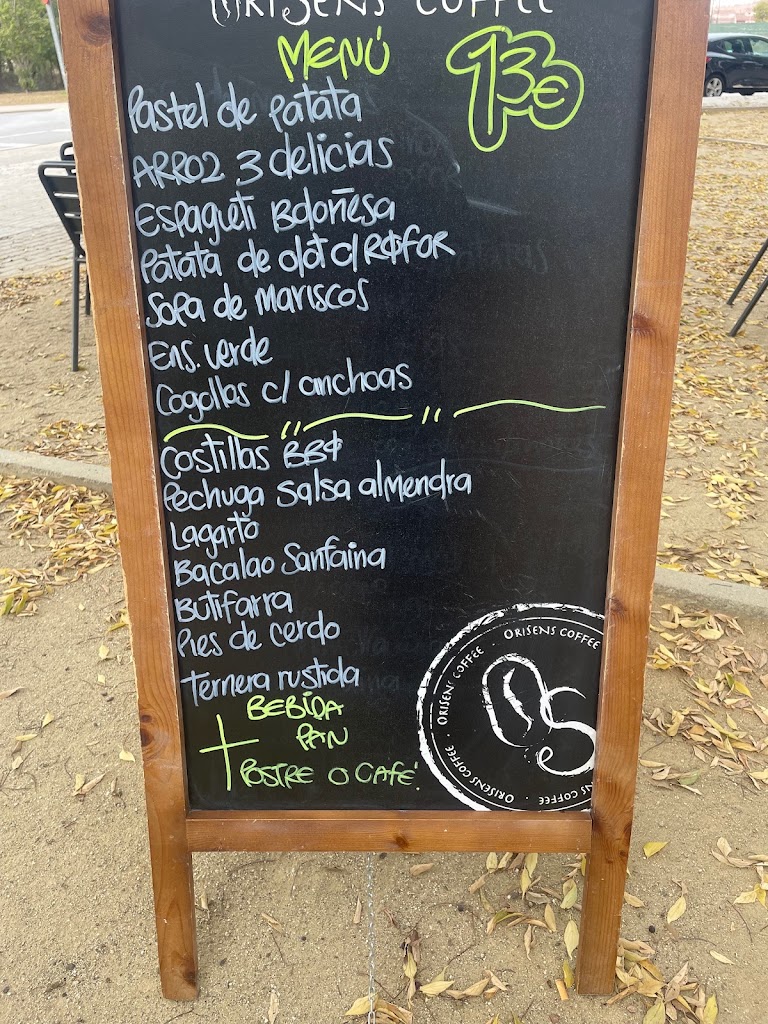 ORISENS COFFEE
MENÚ 13€
Pastel de patata
ARROZ 3 delicias
Espagueti Boloñesa
Patata de olot c/ Rqfor
Sopa de Mariscos
Ens. verde
Cogollos c/ anchoas
Costillas BBQ
Pechuga salsa almendra
Lagarto
Bacalao Sanfaina
Butifarra
Pies de cerdo
Ternera rustida
+ BEBIDA
PAN
POSTRE O CAFÉ.
ORISENS COFFEE · ORISENS COFFEE · ORISENS COFFEE
OS